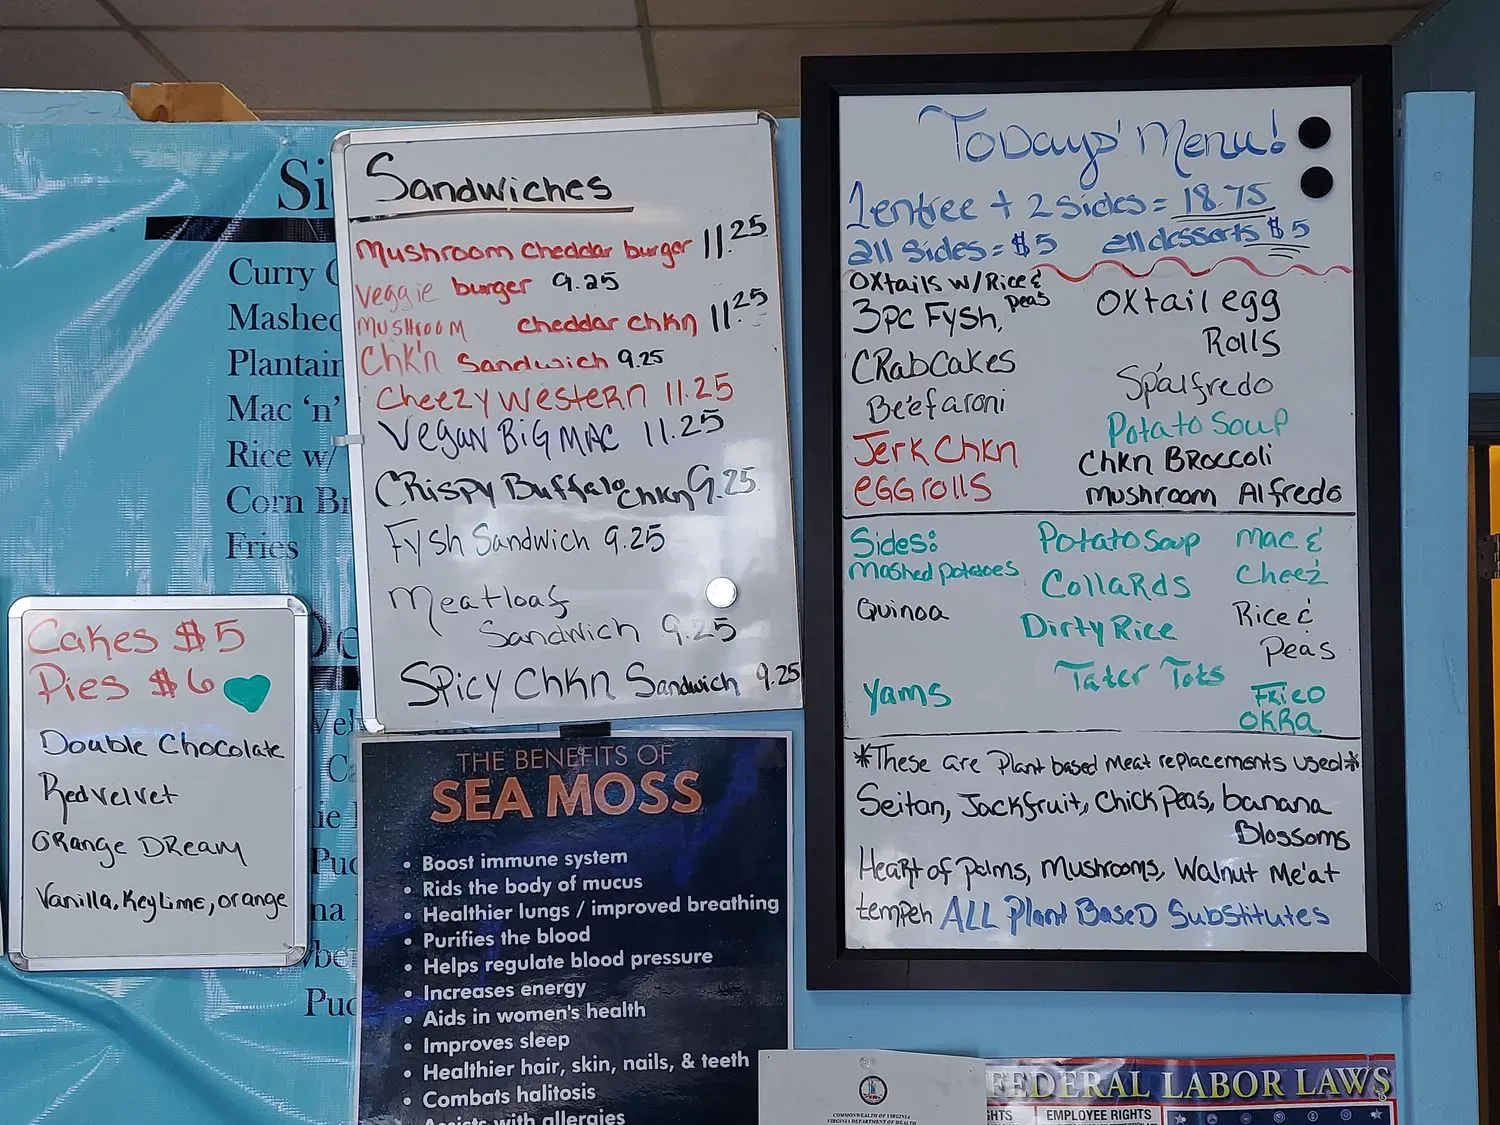 Si
Curry
Mashed
Plantain
Mac 'n'
Rice w/
Corn Br
Fries
De
Vel
Sandwiches
Mushroom cheddar burger 11.25
Veggie burger 9.25
Mushroom cheddar chkn 11.25
Chk'n Sandwich 9.25
Cheezy Western 11.25
Vegan Big Mac 11.25
Crispy Buffalo chkn 9.25
Fysh Sandwich 9.25
Meatloaf
Sandwich 9.25
Spicy Chkn Sandwich 9.25
Cakes $5
Pies $6
Double Chocolate
Red velvet
Orange Dream
Vanilla, Key Lime, orange
THE BENEFITS OF
SEA MOSS
• Boost immune system
• Rids the body of mucus
• Healthier lungs / improved breathing
• Purifies the blood
• Helps regulate blood pressure
• Increases energy
• Aids in women's health
• Improves sleep
• Healthier hair, skin, nails, & teeth
• Combats halitosis
• Assists with allergies
Todays' Menu!
1 entree + 2 sides = 18.75
all sides = $5 all desserts $5
Oxtails w/ Rice &
Peas
3pc Fysh,
Crab Cakes
Be'efaroni
Jerk Chkn
Egg rolls
Oxtail egg
Rolls
Sp'alfredo
Potato Soup
Chkn Broccoli
Mushroom Alfredo
Sides:
Mashed Potatoes
Quinoa
Yams
Potato Soup
Collards
Dirty Rice
Tater Tots
Mac &
Cheez
Rice &
Peas
Fried
Okra
*These are Plant based meat replacements used*
Seitan, Jackfruit, Chick Peas, banana
Blossoms
Heart of Palms, Mushrooms, Walnut Me'at
tempeh ALL Plant Based Substitutes
COMMONWEALTH OF VIRGINIA
VIRGINIA DEPARTMENT OF HEALTH
FEDERAL LABOR LAWS
EMPLOYEE RIGHTS